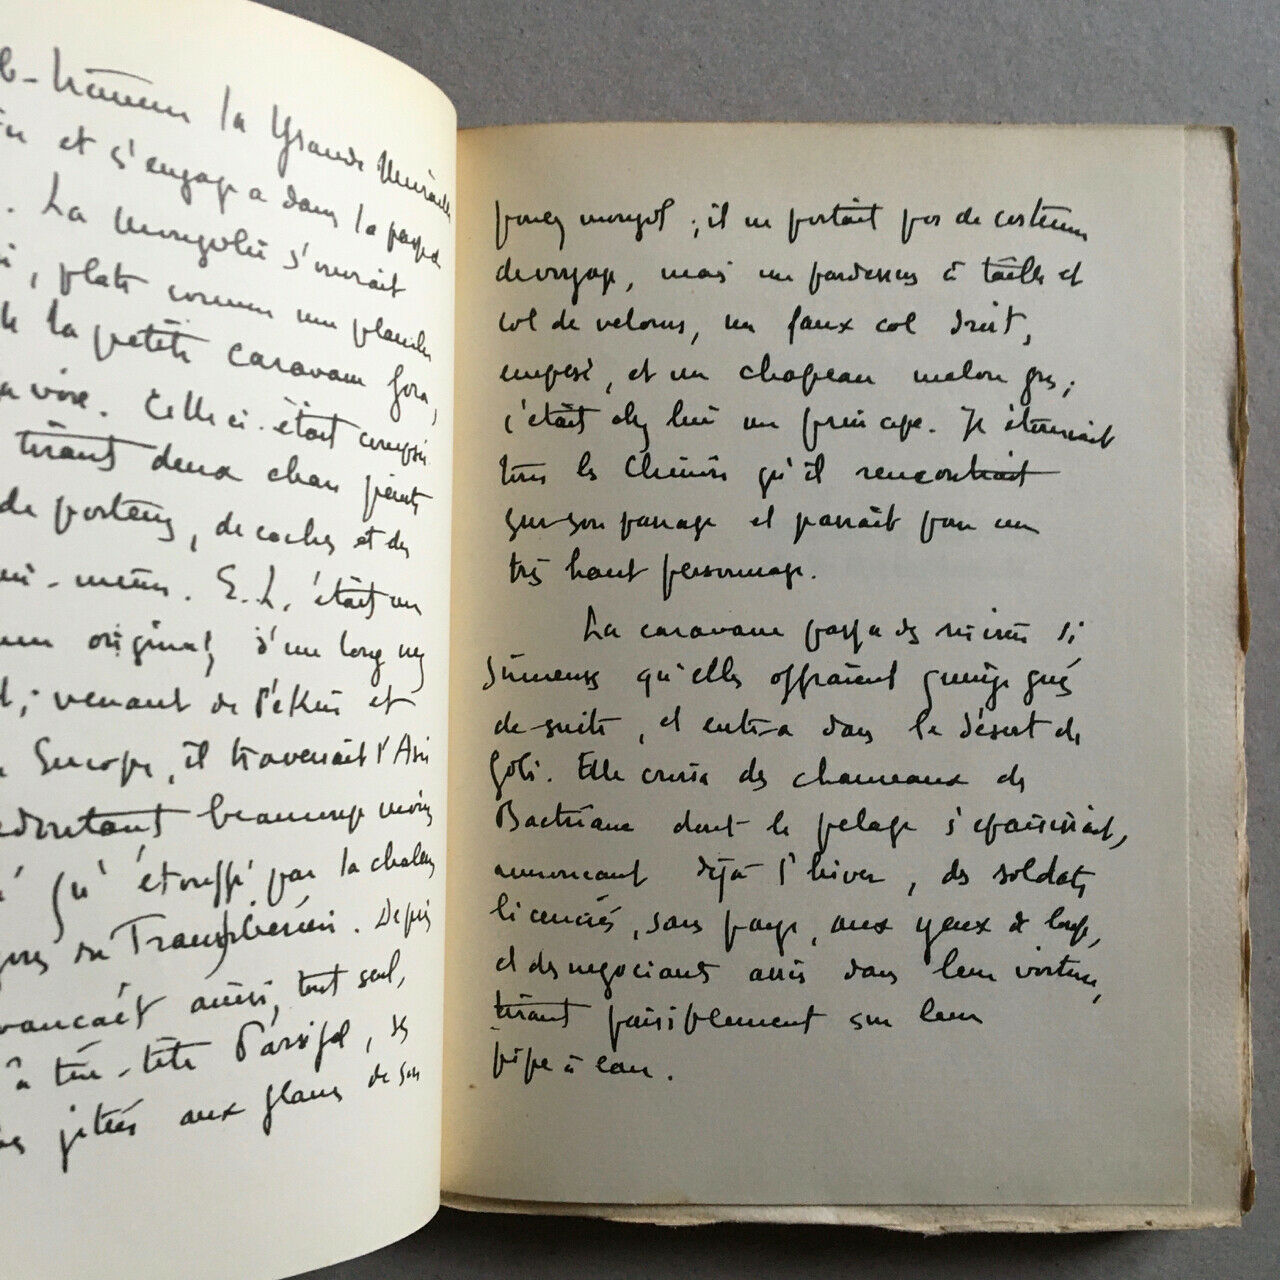 la Grande Muraille
et s'engagea dans la passe
. La Mongolie s'ouvrait
, plate comme une planche
la petite caravane
. Celle ci était composée
tirant deux chars peints
de porteurs, de coolies et des
. E.L. était un
original, d'un long nez
; venant de Pékin et
Europe, il traversait l'Asie
redoutant beaucoup moins
qu'étouffé par la chaleur
du Transsibérien. Depuis
avançait ainsi, tout seul,
à tue-tête Parsifal, les
jetées aux glands de son
poney mongol ; il ne portait pas de costume
de voyage, mais un pardessus à taille et
col de velours, un faux col droit,
empesé, et un chapeau melon gris ;
c'était chez lui un principe. Il étonnait
tous les Chinois qu'il rencontrait
sur son passage et passait pour un
très haut personnage.
La caravane passa des rivières si
sinueuses qu'elles offraient quinze gués
de suite, et entra dans le désert de
Gobi. Elle croisa des chameaux de
Bactriane dont le pelage s'épaississait,
annonçant déjà l'hiver, des soldats
licenciés, sans paye, aux yeux de loup,
et des négociants assis dans leur voiture,
tirant paisiblement sur leur
pipe à eau.